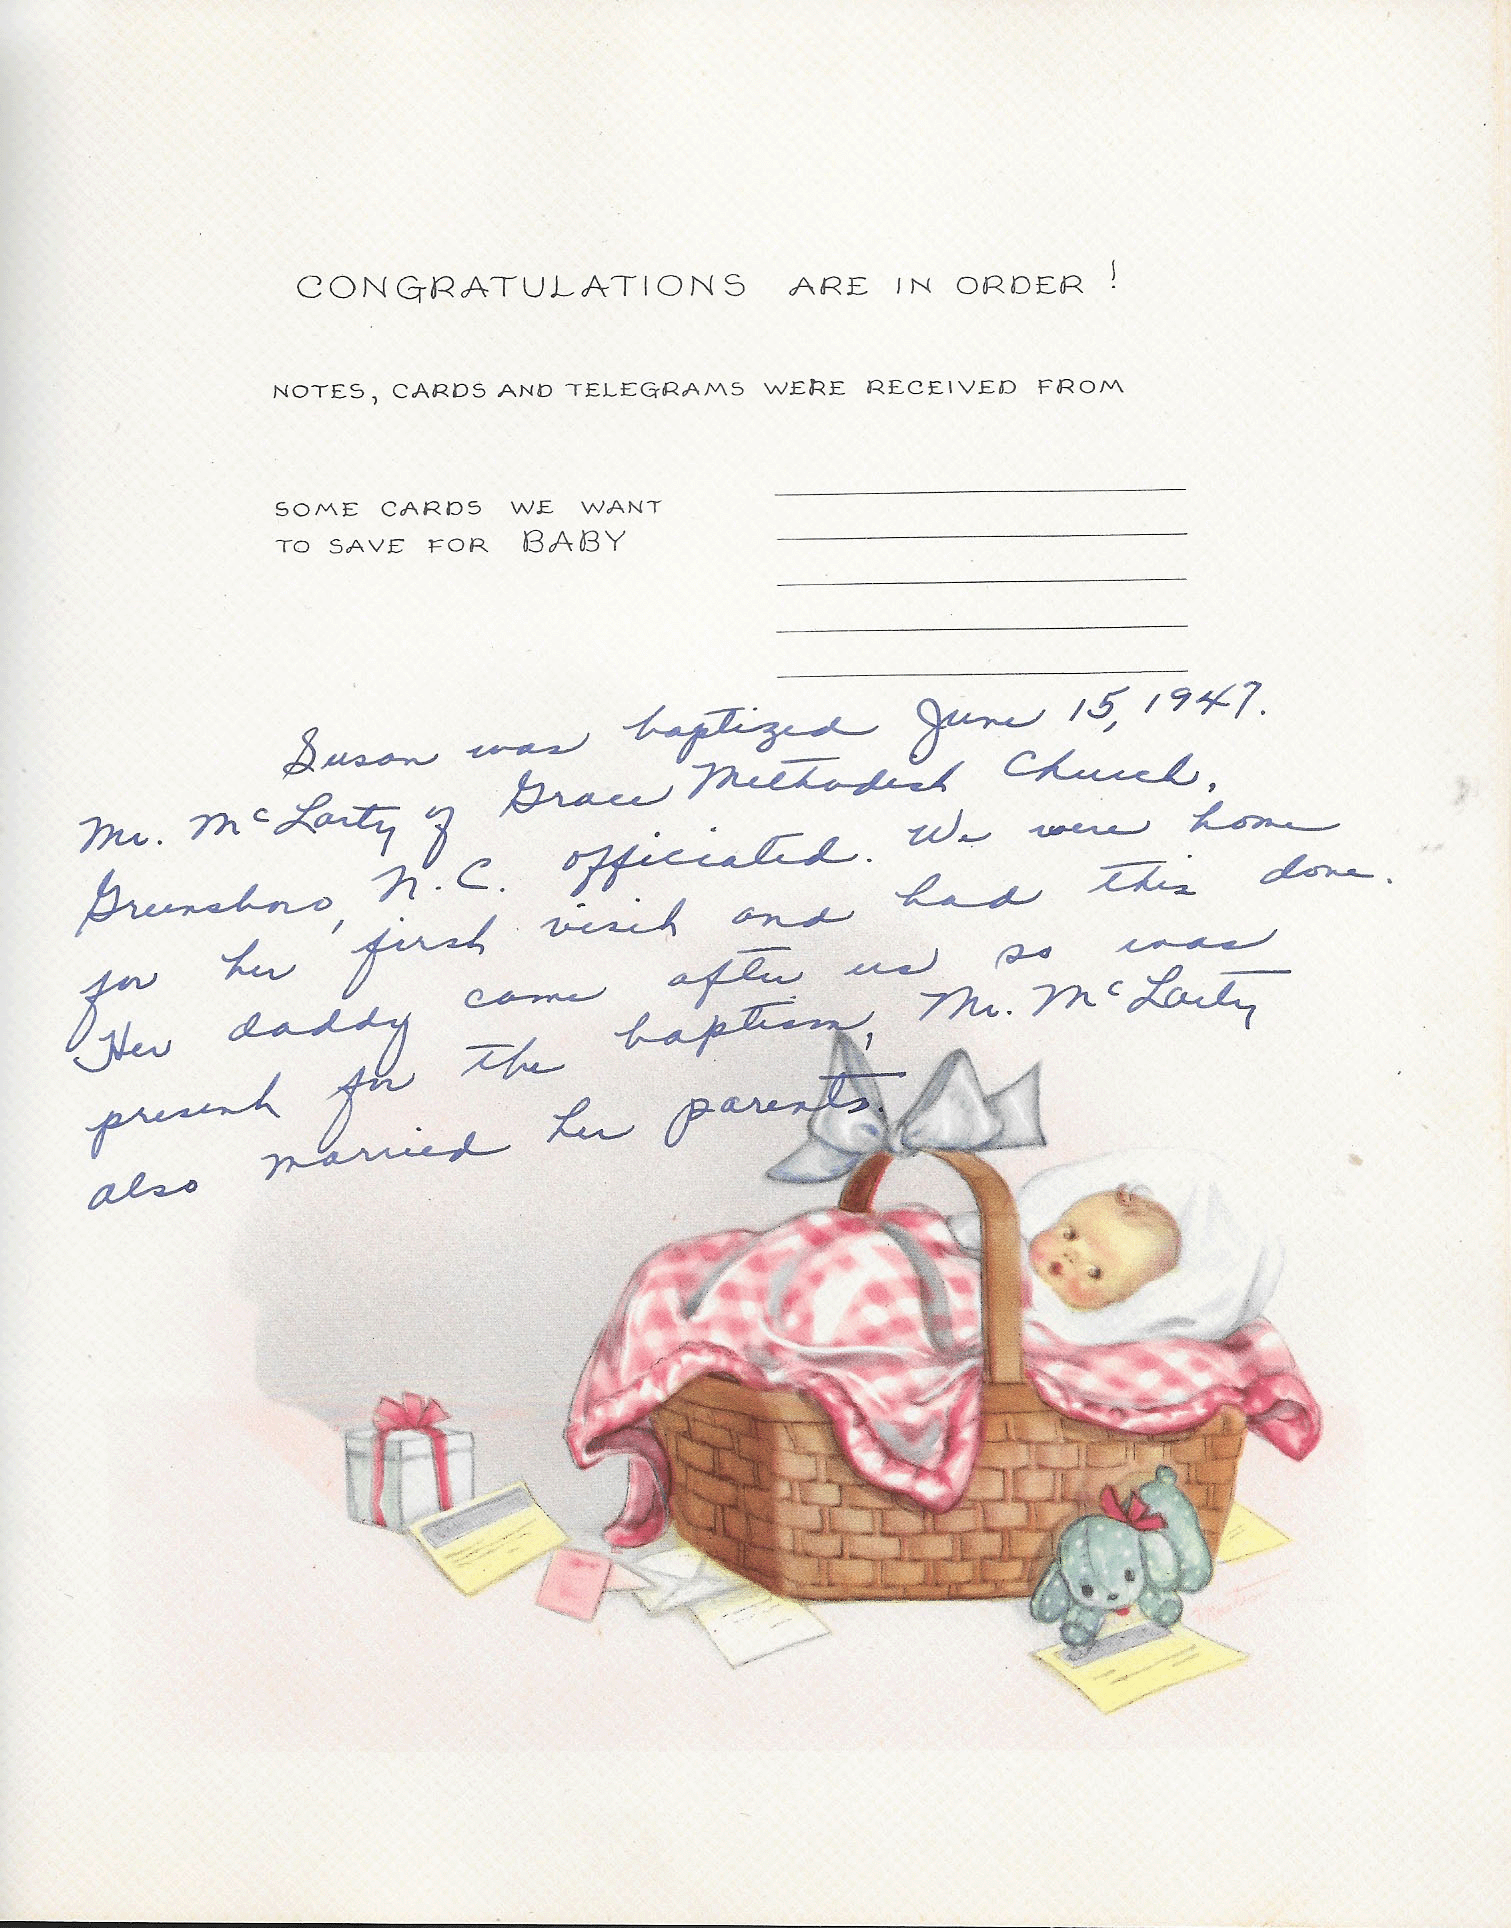 CONGRATULATIONS ARE IN ORDER!
NOTES, CARDS AND TELEGRAMS WERE RECEIVED FROM
SOME CARDS WE WANT
TO SAVE FOR BABY
Susan was baptized June 15, 1947.
Mr. McLarty of Grace Methodist Church,
Greensboro, N.C. officiated. We were home
for her first visit and had this done.
Her daddy came after us so was
present for the baptism, Mr. McLarty
also married her parents.